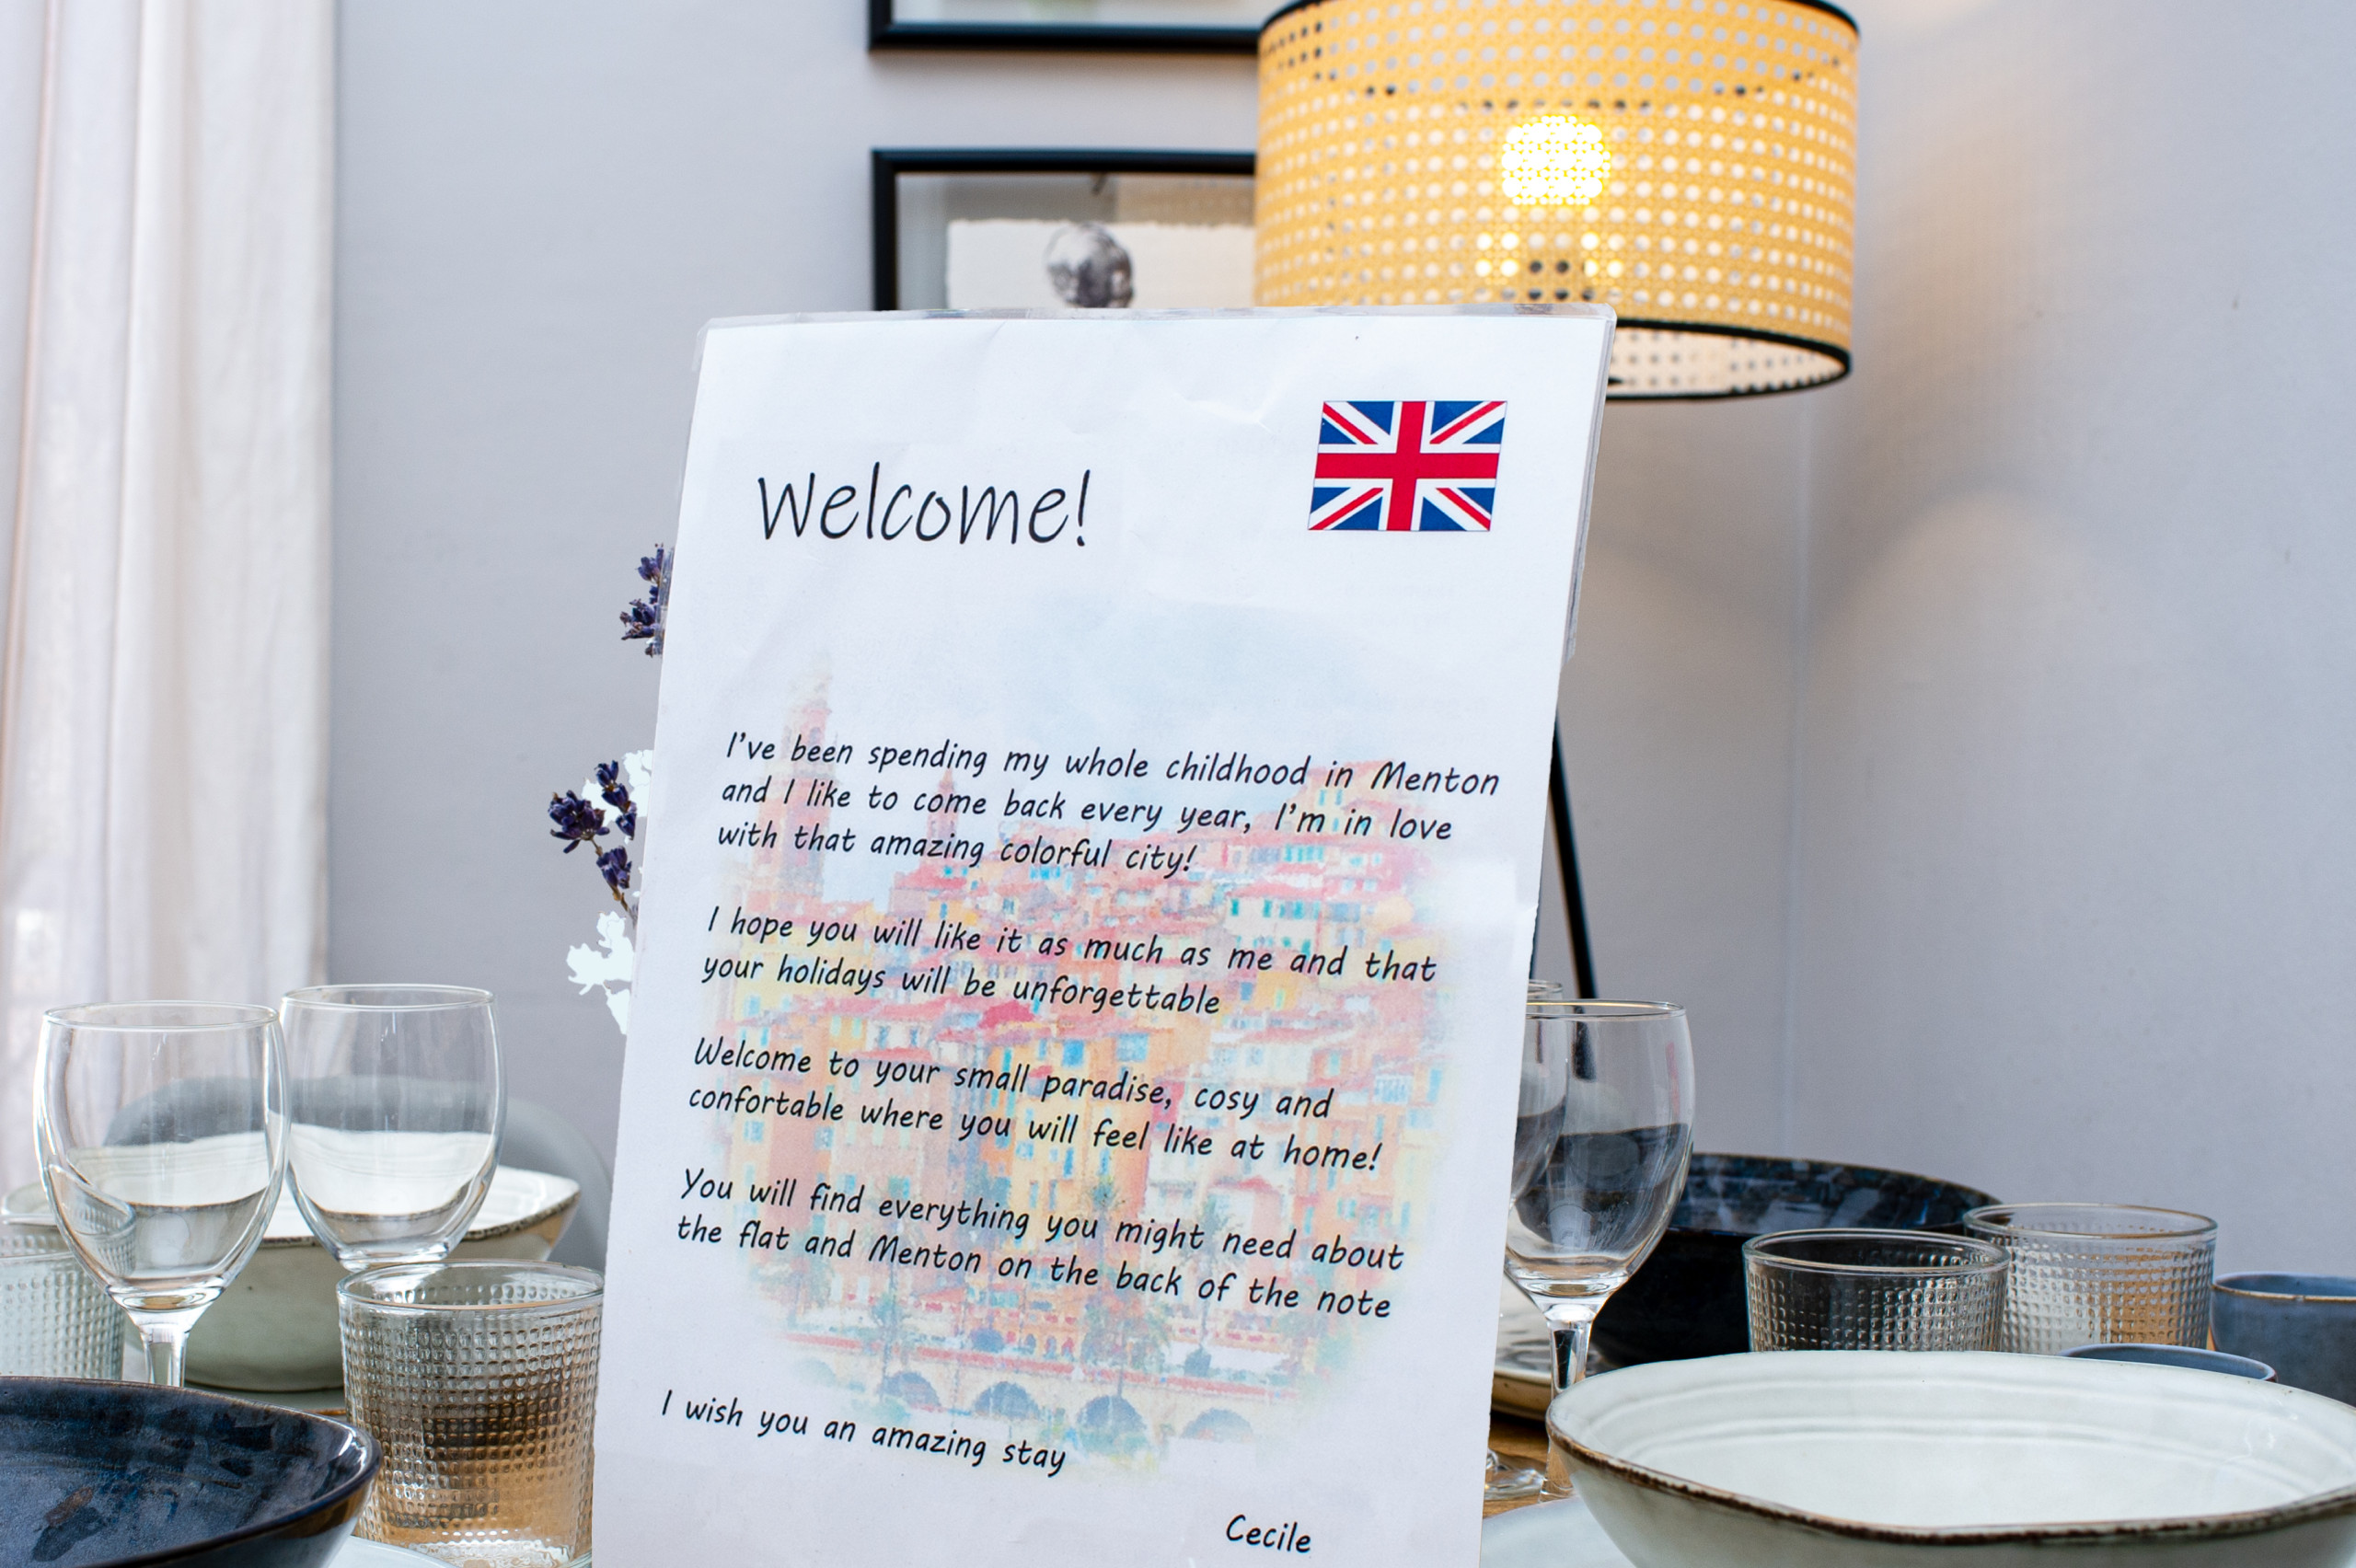 Welcome!
I've been spending my whole childhood in Menton
and I like to come back every year, I'm in love
with that amazing colorful city!
I hope you will like it as much as me and that
your holidays will be unforgettable
Welcome to your small paradise, cosy and
confortable where you will feel like at home!
You will find everything you might need about
the flat and Menton on the back of the note
I wish you an amazing stay
Cecile